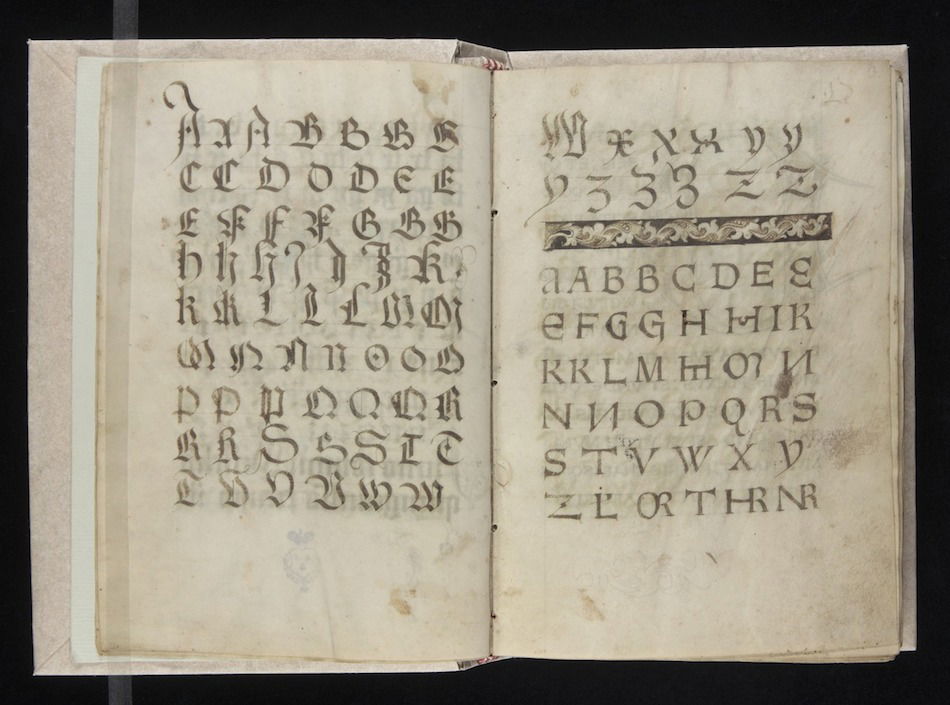 A A A B B B B
C C D D D E E
E F F F G G G
h h h J J J K
K K L L L M M
M N N N O O O
P P P Q Q Q R
R R S S S T T
T V V V W W
W X X X Y Y
Y Z Z Z Z Z
A A B B C D E E
E F G G H H I K
K K L M M M N
N N O P Q R S
S T V W X Y
Z L OR T HR NR